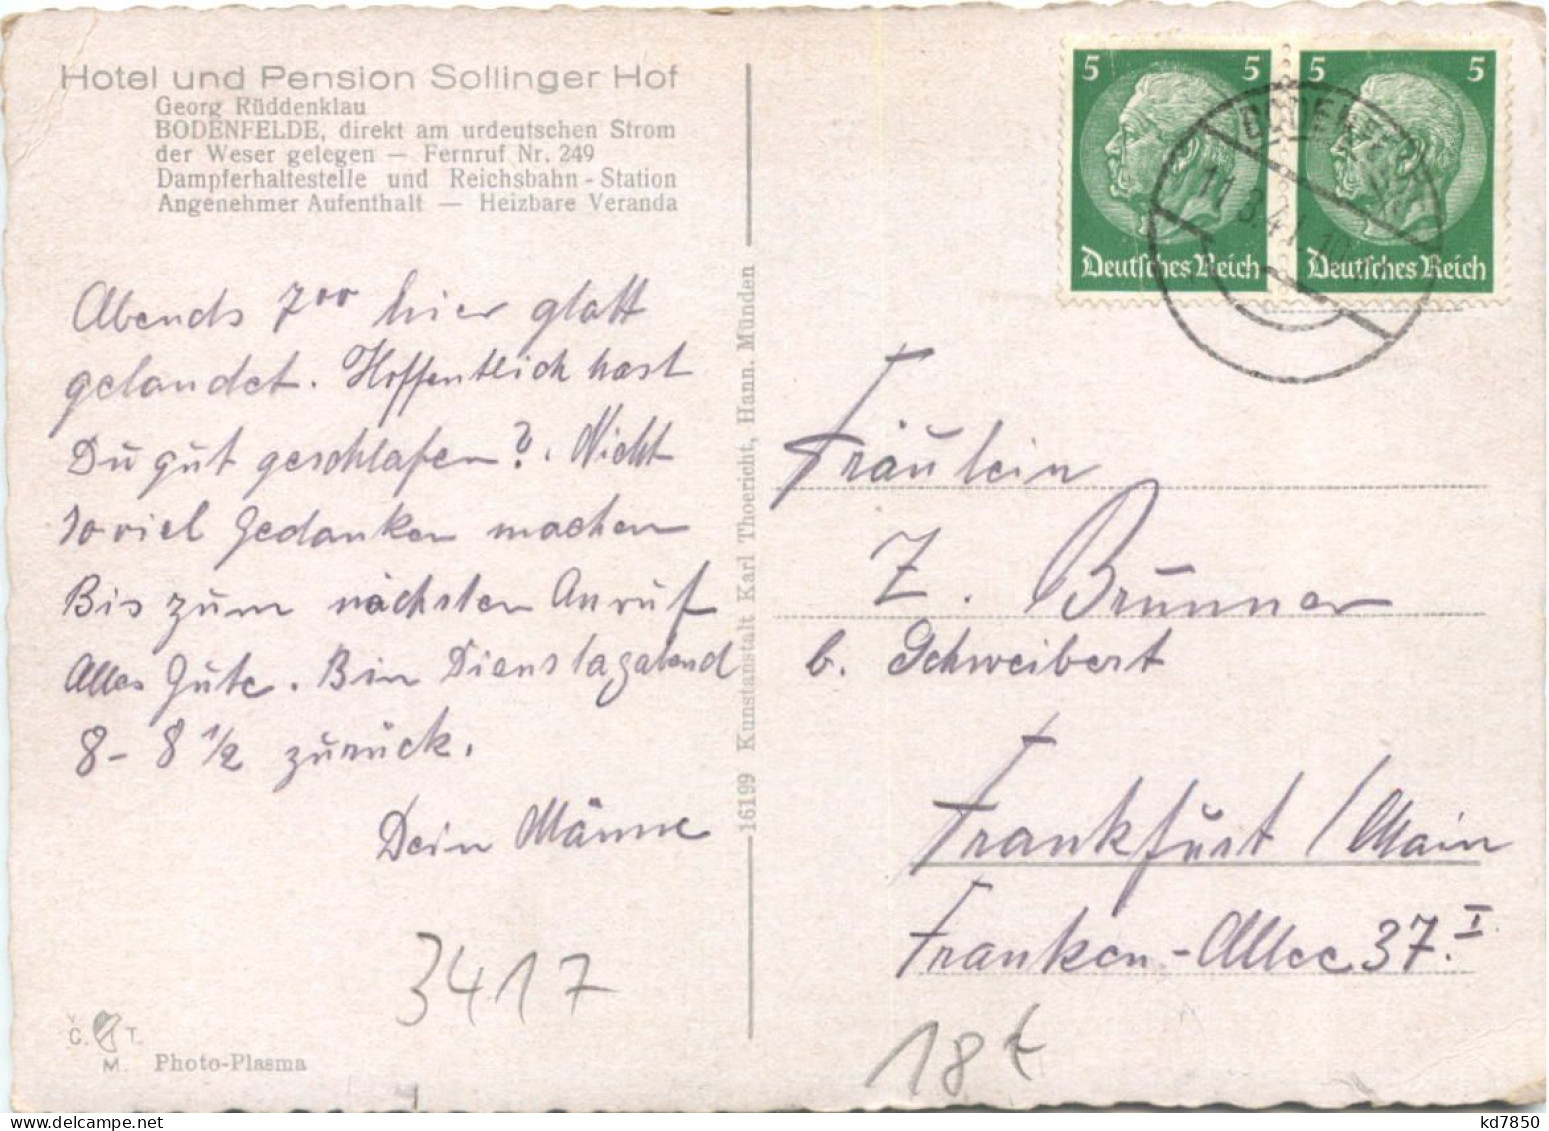 Hotel und Pension Sollinger Hof
Georg Rüddenklau
BODENFELDE, direkt am urdeutschen Strom
der Weser gelegen — Fernruf Nr. 249
Dampferhaltestelle und Reichsbahn-Station
Angenehmer Aufenthalt — Heizbare Veranda
Abends 7⁰⁰ hier glatt
gelandet. Hoffentlich hast
Du gut geschlafen?. Nicht
so viel Gedanken machen
Bis zum nächsten Anruf
Alles Gute. Bin Dienstagabend
8 - 8 1/2 zurück.
Dein Männe
3417
V.
C. T.
M. Photo-Plasma
16199 Kunstanstalt Karl Thoericht, Hann. Münden
5 5
Deutsches Reich
5 5
Deutsches Reich
11.3.41
Fräulein
Z. Brunner
b. Schweibert
Frankfurt / Main
Franken-Allee 37. I
18 t
kd7850